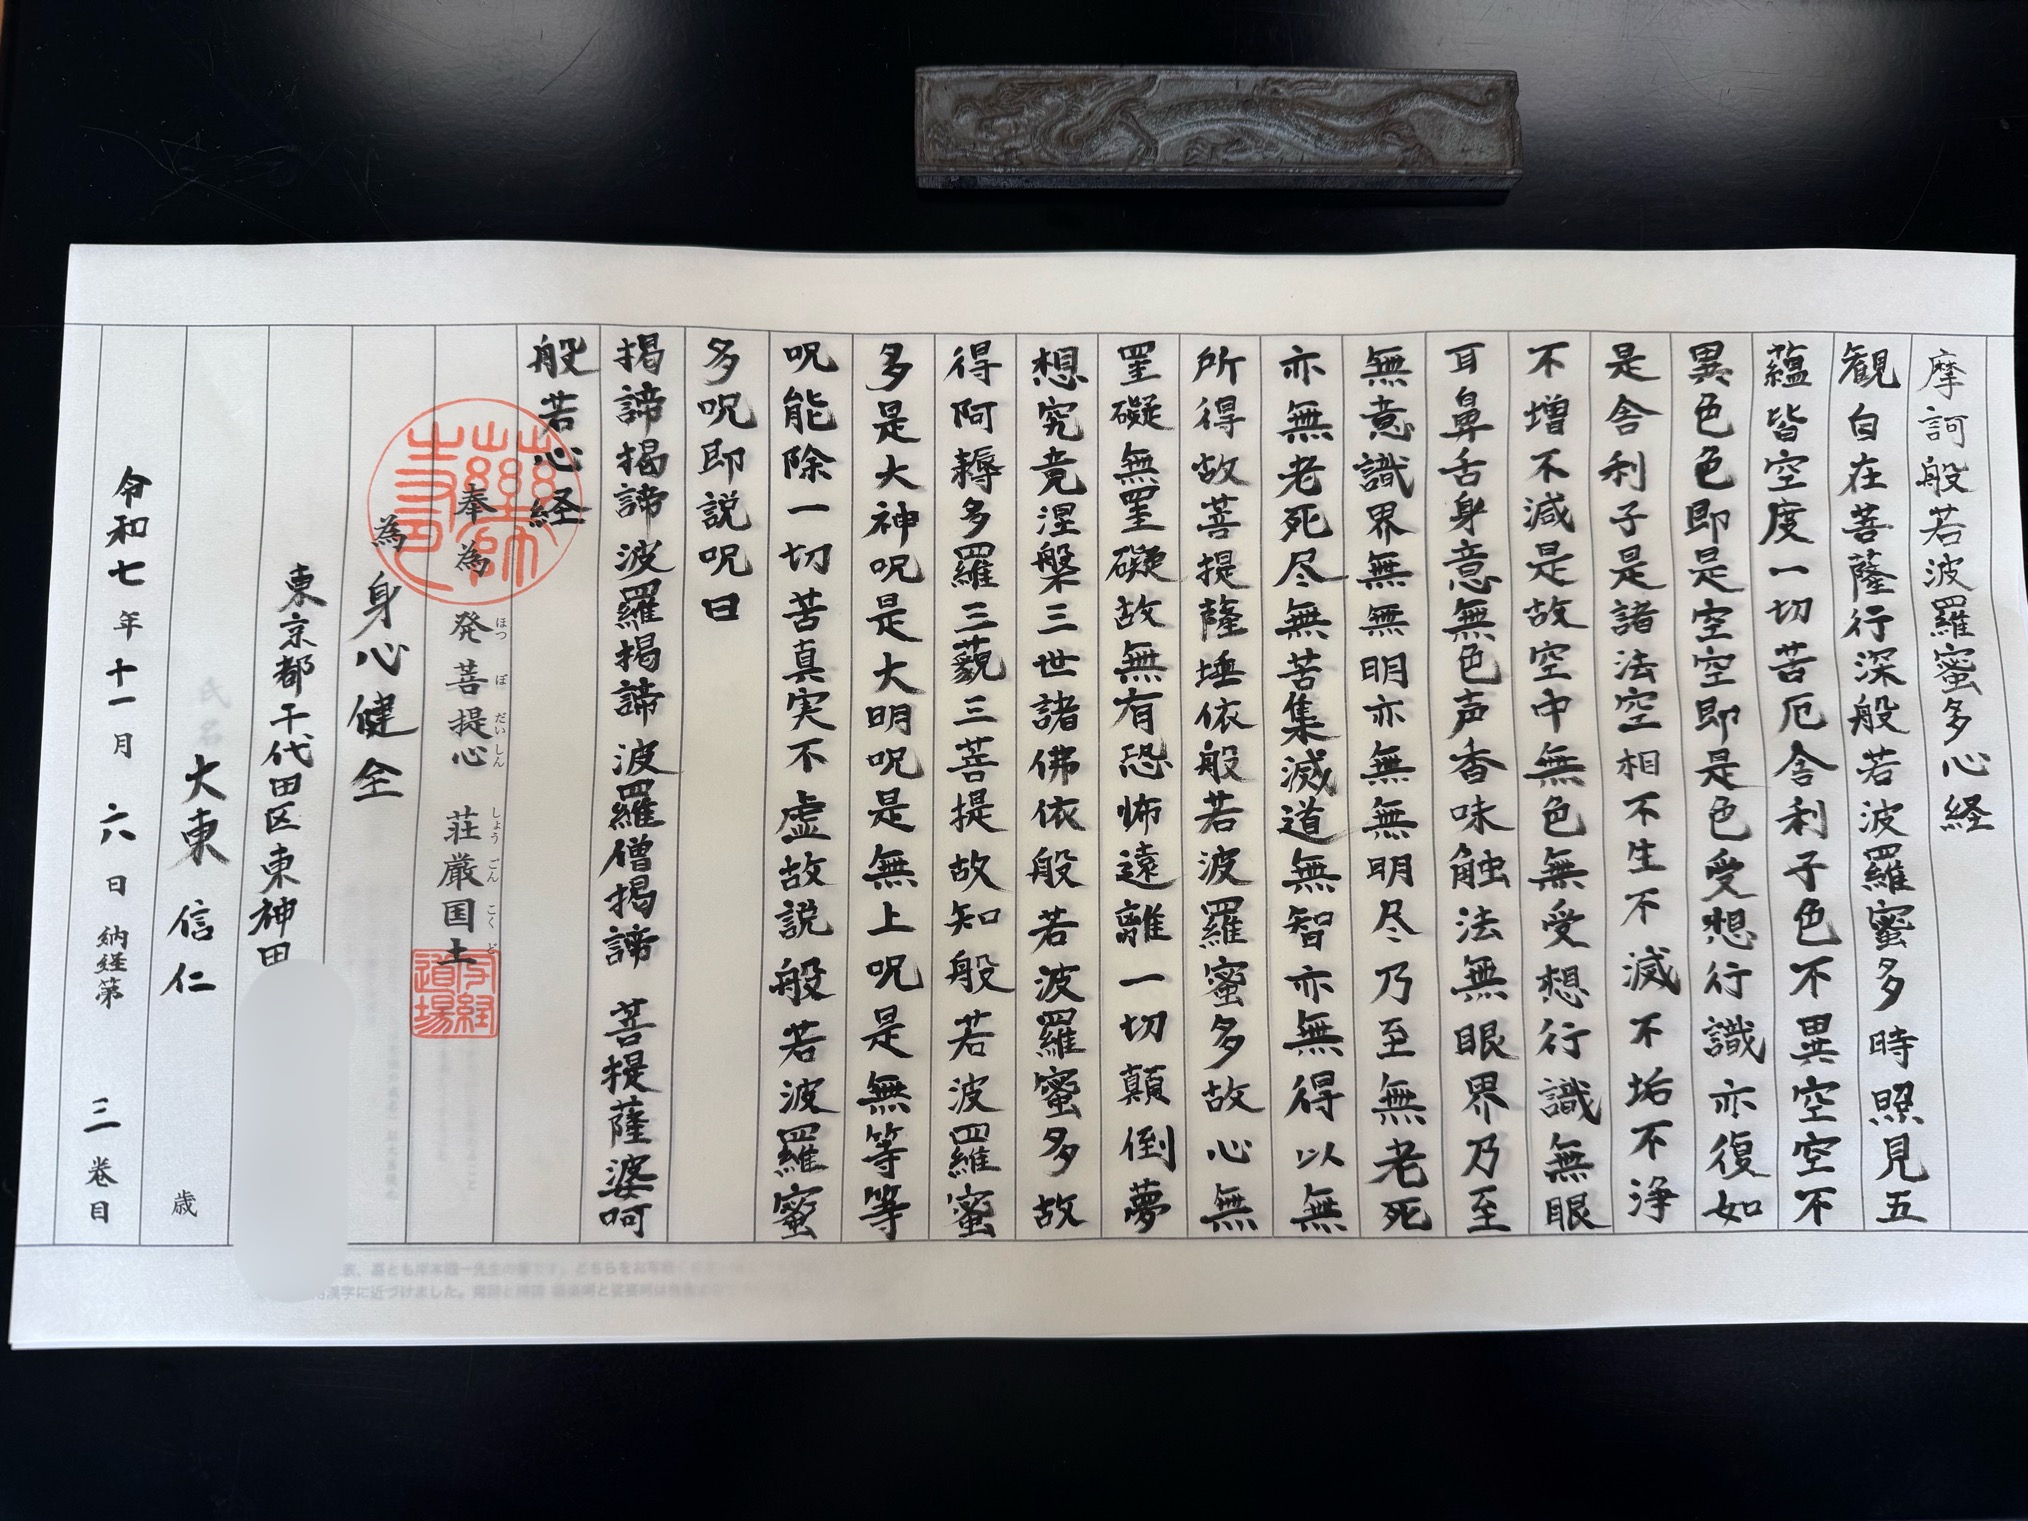 摩訶般若波羅蜜多心経
観自在菩薩行深般若波羅蜜多時照見五
蘊皆空度一切苦厄舎利子色不異空空不
異色色即是空空即是色受想行識亦復如
是舎利子是諸法空相不生不滅不垢不浄
不増不減是故空中無色無受想行識無眼
耳鼻舌身意無色声香味触法無眼界乃至
無意識界無無明亦無無明尽乃至無老死
亦無老死尽無苦集滅道無智亦無得以無
所得故菩提薩埵依般若波羅蜜多故心無
罣礙無罣礙故無有恐怖遠離一切顛倒夢
想究竟涅槃三世諸佛依般若波羅蜜多故
得阿耨多羅三藐三菩提故知般若波羅蜜
多是大神呪是大明呪是無上呪是無等等
呪能除一切苦真実不虚故説般若波羅蜜
多呪即説呪曰
掲諦掲諦 波羅掲諦 波羅僧掲諦 菩提薩婆呵
般若心経
奉為 発菩提心 荘厳国土
ほつ ぼ だい しん しょう ごん こく ど
写経道場
為 身心健全
東京都千代田区東神田
大東信仁 歳
令和七年十一月六日 納経第三巻目